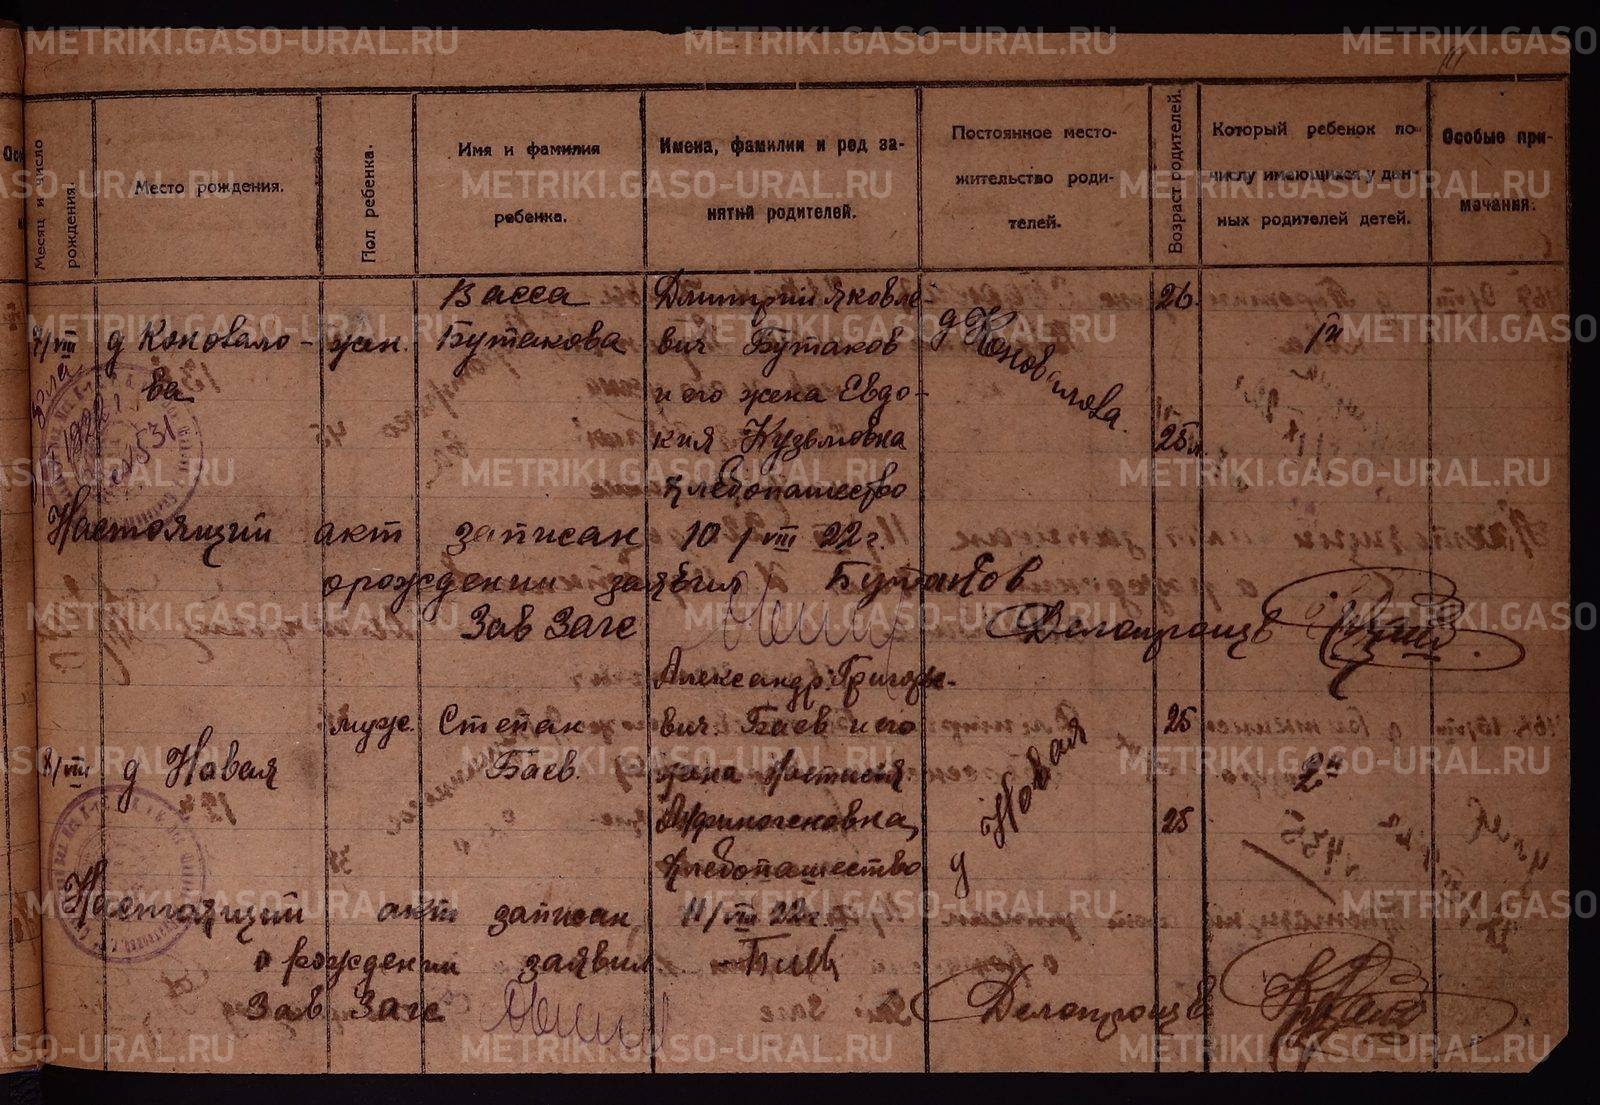 METRIKI.GASO-URAL.RU
Месяц и число рождения.
Место рождения.
Пол ребенка.
Имя и фамилия
ребенка.
Имена, фамилии и род за-
нятий родителей.
Постоянное место-
жительство роди-
телей.
Возраст родителей.
Который ребенок по
числу имеющихся у дан-
ных родителей детей.
Особые при-
мечания.
7/VIII
д Коновало-
ва
жен.
Васса
Бутакова
Дмитрий Яковле-
вич Бутаков
и его жена Евдо-
кия Кузьмовна
хлебопашество
д Коновалова.
26.
25 л.
1й
Настоящий акт записан 10/VIII 22 г.
о рождении заявил Бутаков
Зав Загс
Делопроизв
8/VIII
д Новая
муж.
Степан
Баев.
Александр Григорье-
вич Баев и его
жена Настасия
Афиногеновна,
хлебопашество
д Новая
25
25
2й
Настоящий акт записан 11/VIII 22 г.
о рождении заявил Баев
Зав Загс
Делопроизв